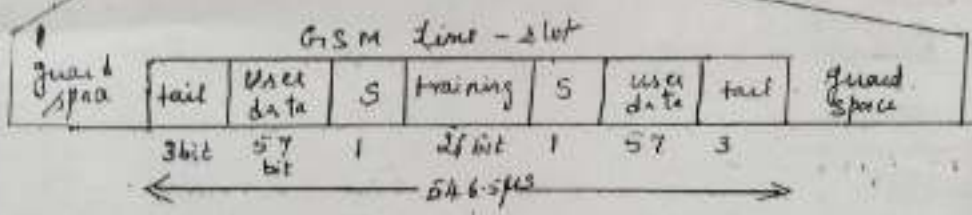 GSM time-slot
guard space
tail
user data
S
training
S
user data
tail
guard space
3 bit
57 bit
1
26 bit
1
57
3
546.5 µs